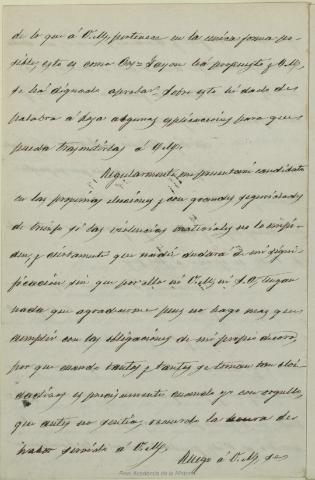 de lo que á V.M. pertenece en la única forma po-
sible, esto es como Rey = Tayon ha propuesto y V.M.
se há dignado aprobar. Sobre esto he dado de
palabra á Rojo algunas esplicaciones para que
pueda trasmitirlas á V.M.
Regularmente me presentaré candidato
en las proximas elecciones y con grandes seguridades
de triunfo si las violencias materiales no lo impi-
den, y ciertamente que nadie dudará de mi signi-
ficacion sin que por ello ni V.M. ni S.A. tengan
nada que agradecerme pues no hago mas que
cumplir con las obligaciones de mi propio decoro,
por que cuando tantos y tantas se toman tan
es precisamente cuando yo con orgullo,
que antes no sentia, recuerdo la honra de
haber servido á V.M.
Ruego á V.M. se
Real Academia de la Historia